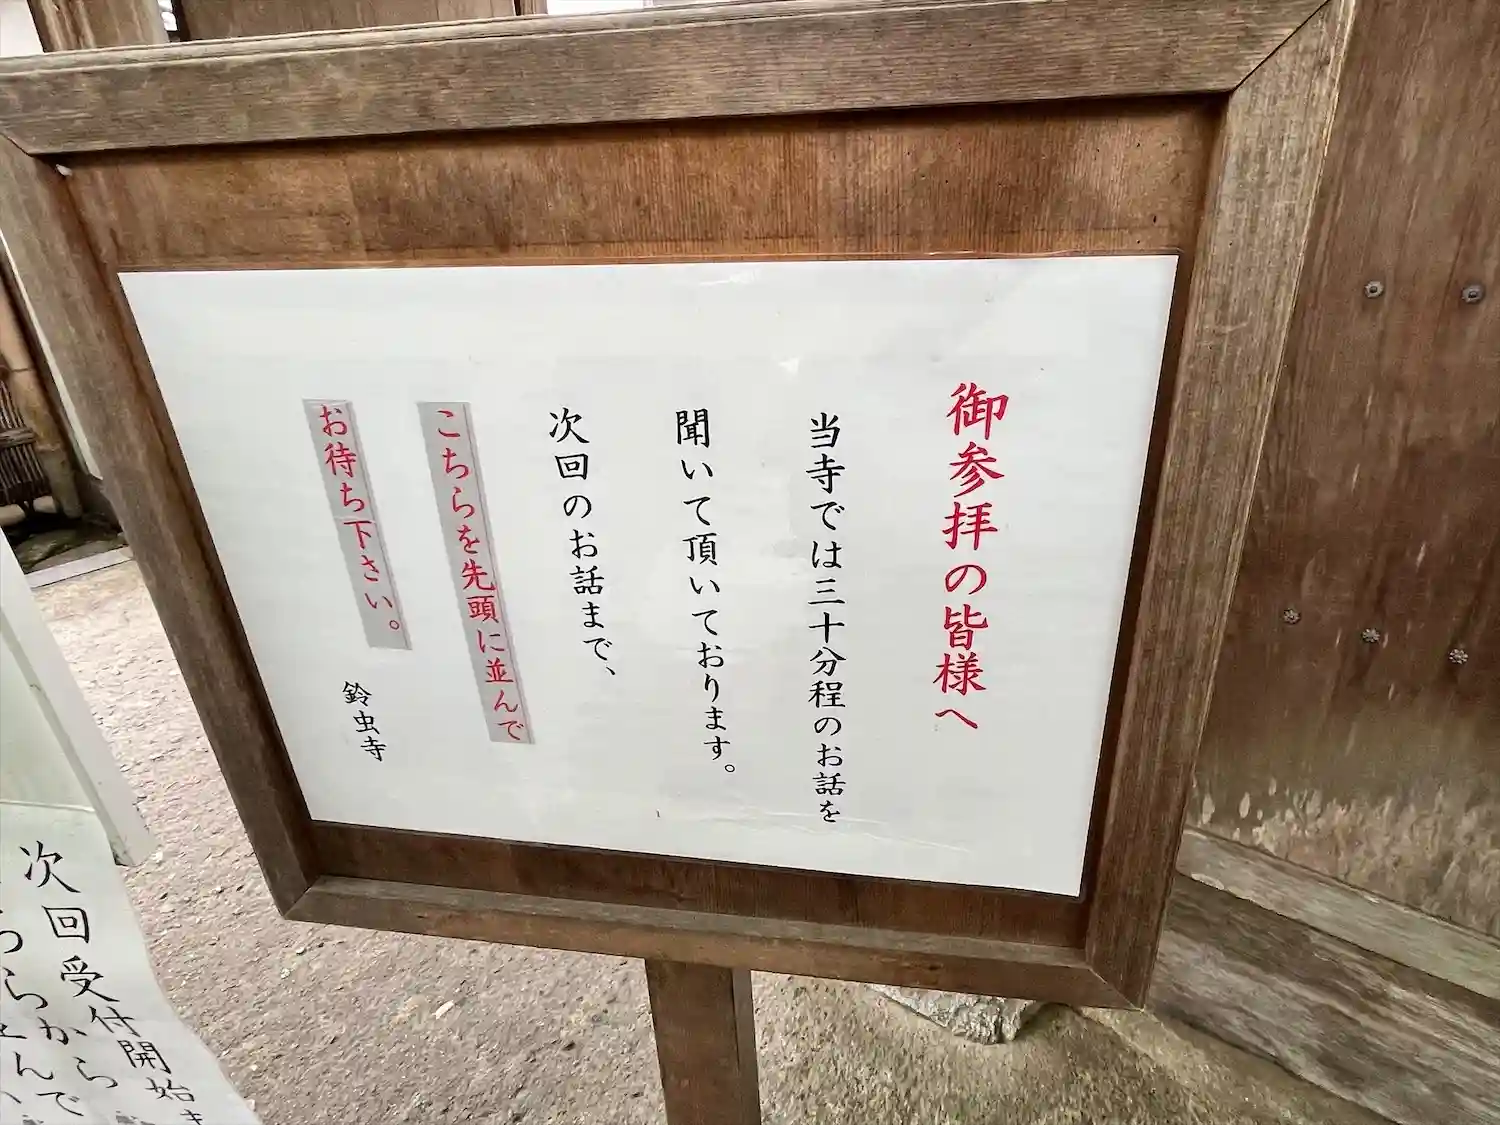 御参拝の皆様へ
当寺では三十分程のお話を
聞いて頂いております。
次回のお話まで、
こちらを先頭に並んで
お待ち下さい。
鈴虫寺
次回受付開始ま